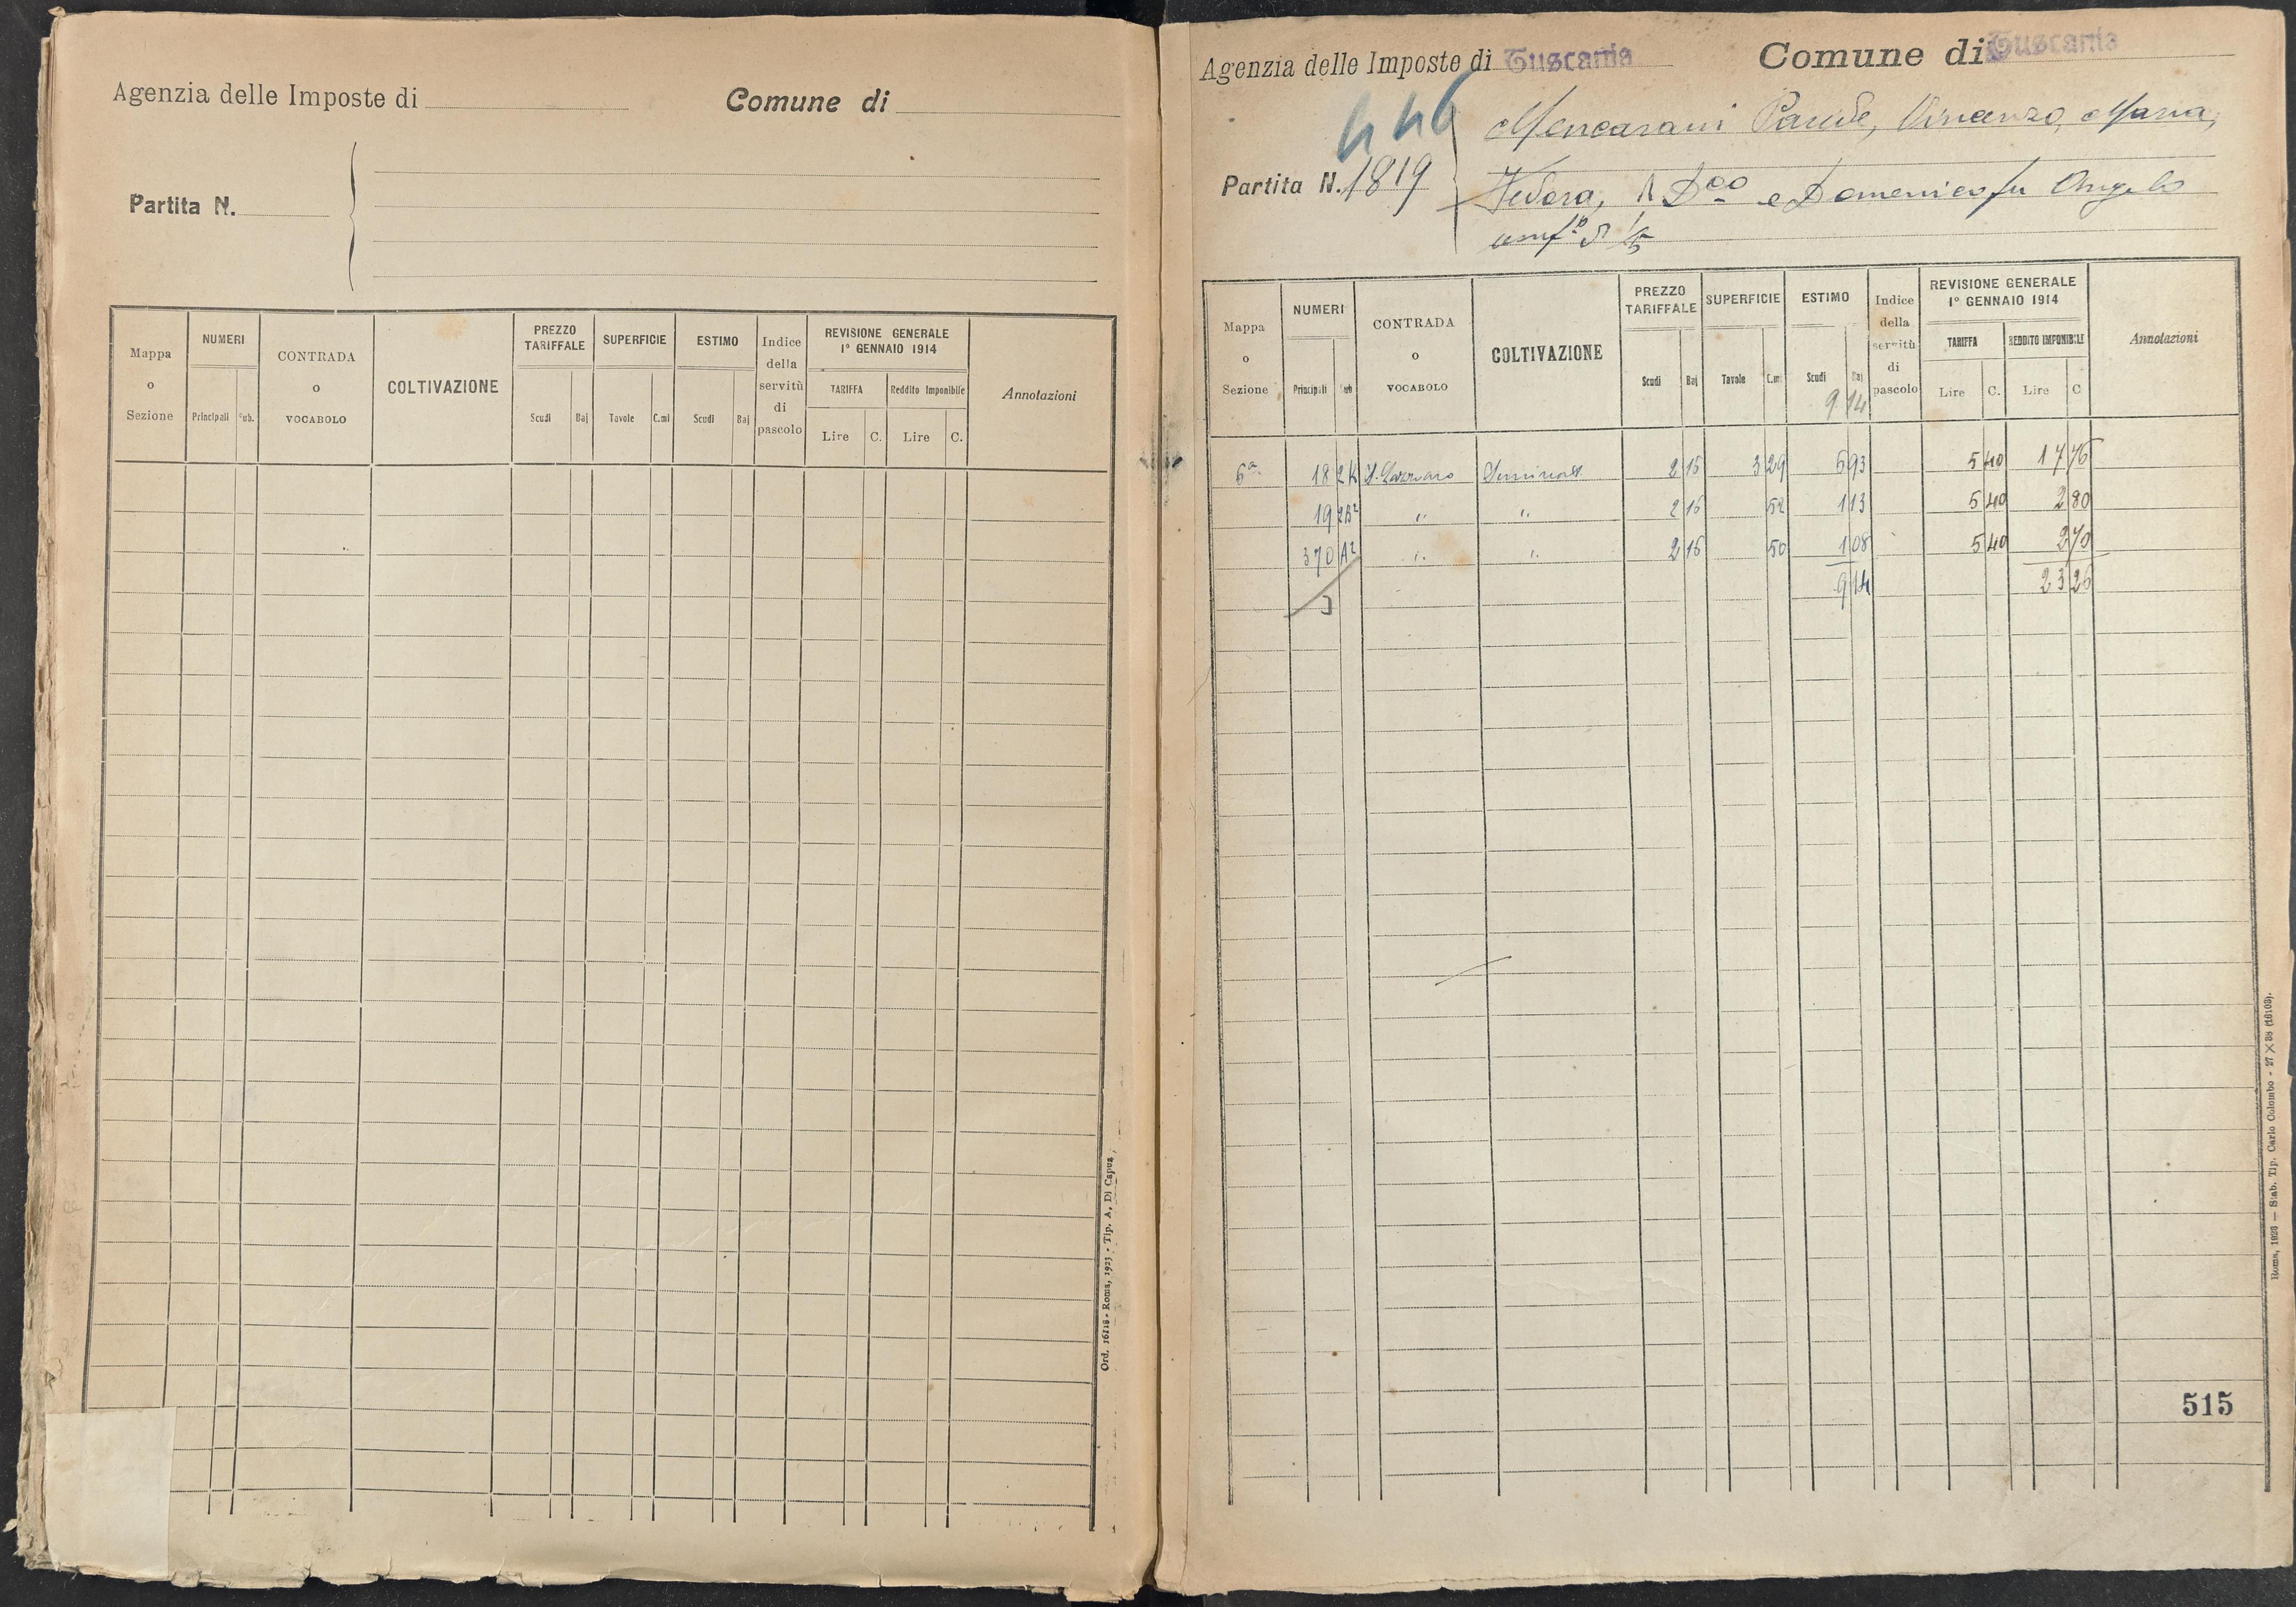 Agenzia delle Imposte di
Comune di
Partita N.
Mappa o Sezione
NUMERI
Principali
Sub.
CONTRADA o VOCABOLO
COLTIVAZIONE
PREZZO TARIFFALE
Scudi
Baj
SUPERFICIE
Tavole
C.mi
ESTIMO
Scudi
Baj
Indice della servitù di pascolo
REVISIONE GENERALE
1° GENNAIO 1914
TARIFFA
Reddito Imponibile
Lire
C.
Lire
C.
Annotazioni
Ord. 16118 - Roma, 1923 - Tip. A. Di Capua
Agenzia delle Imposte di Tuscania
Comune di Tuscania
446
Partita N. 1819
Mencarani Paride, Vincenzo, Maria,
Vedova, e Domenico fu Angelo
Mappa o Sezione
NUMERI
Principali
Sub
CONTRADA o VOCABOLO
COLTIVAZIONE
PREZZO TARIFFALE
Scudi
Baj
SUPERFICIE
Tavole
C.mi
ESTIMO
Scudi
Baj
9 14
Indice della servitù di pascolo
REVISIONE GENERALE
1° GENNAIO 1914
TARIFFA
REDDITO IMPONIBILE
Lire
C.
Lire
C
Annotazioni
6a 18 2K S. Lazzaro Seminat 2 15 3 29 6 93 5 40 17 76
19 2B2 " " 2 16 52 1 13 5 40 2 80
370 A2 " " 2 16 50 1 08 5 40 2 70
9 14 23 26
515
Roma, 1923 — Stab. Tip. Carlo Colombo - 27 X 38 (16103).